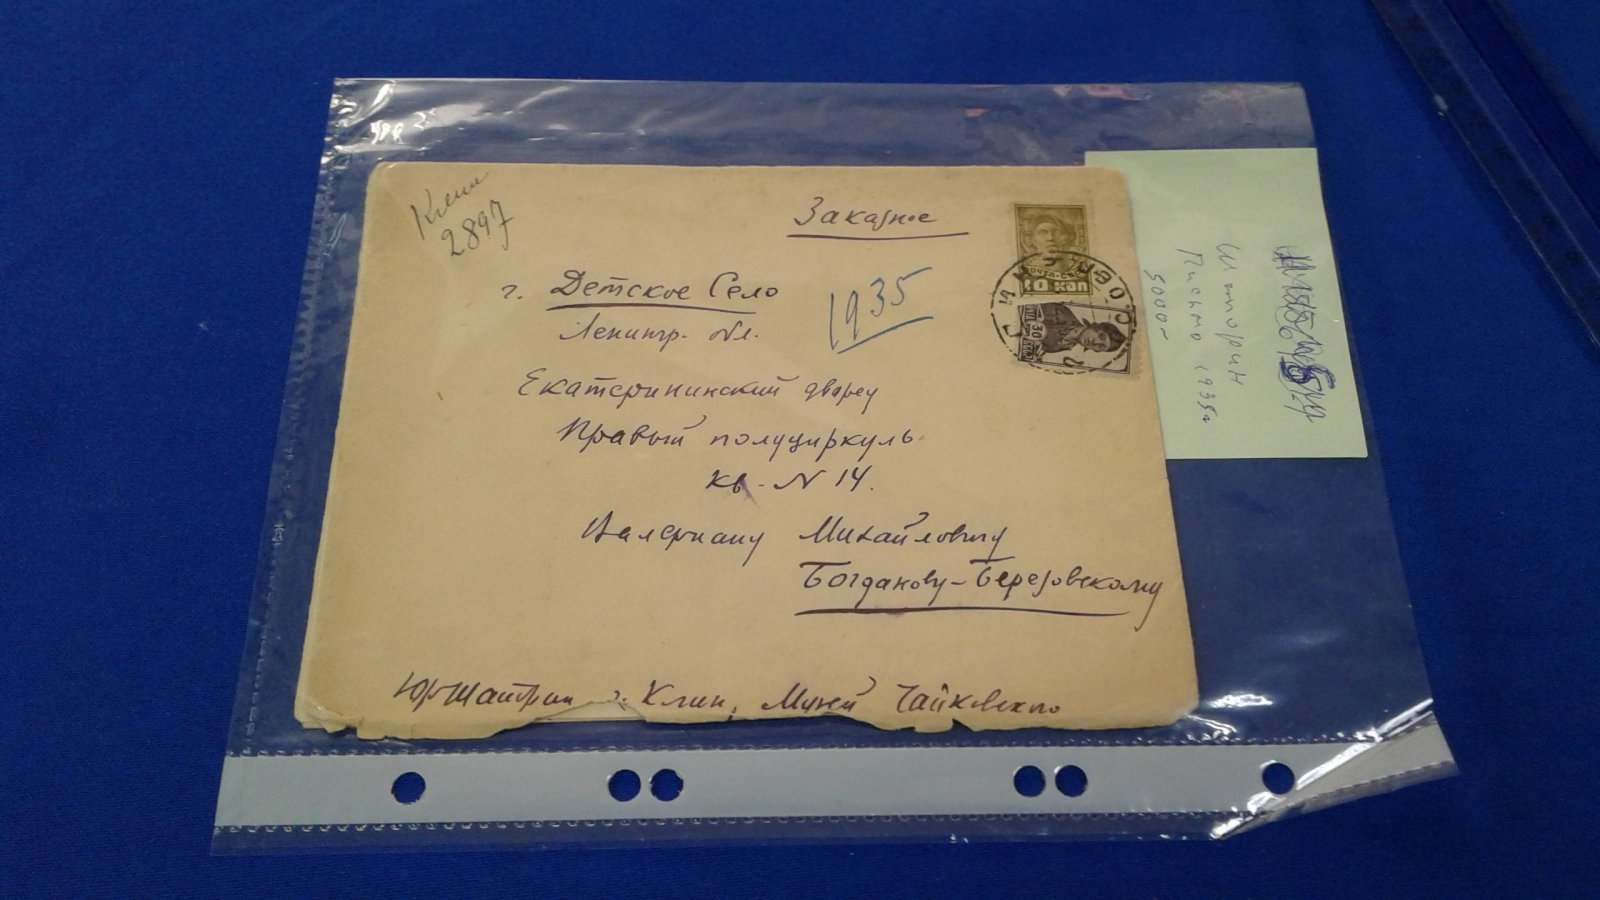 Клин
2897
Заказное
г. Детское Село
1935
Ленингр. обл.
Екатерининский дворец
Правый полуциркуль
кв. N 14.
Валериану Михайловичу
Богданову-Березовскому
Юр Шапорин г. Клин, Музей Чайковского
ПОЧТА
10 КОП
30
Шапорин
Письмо 1935г
5000-